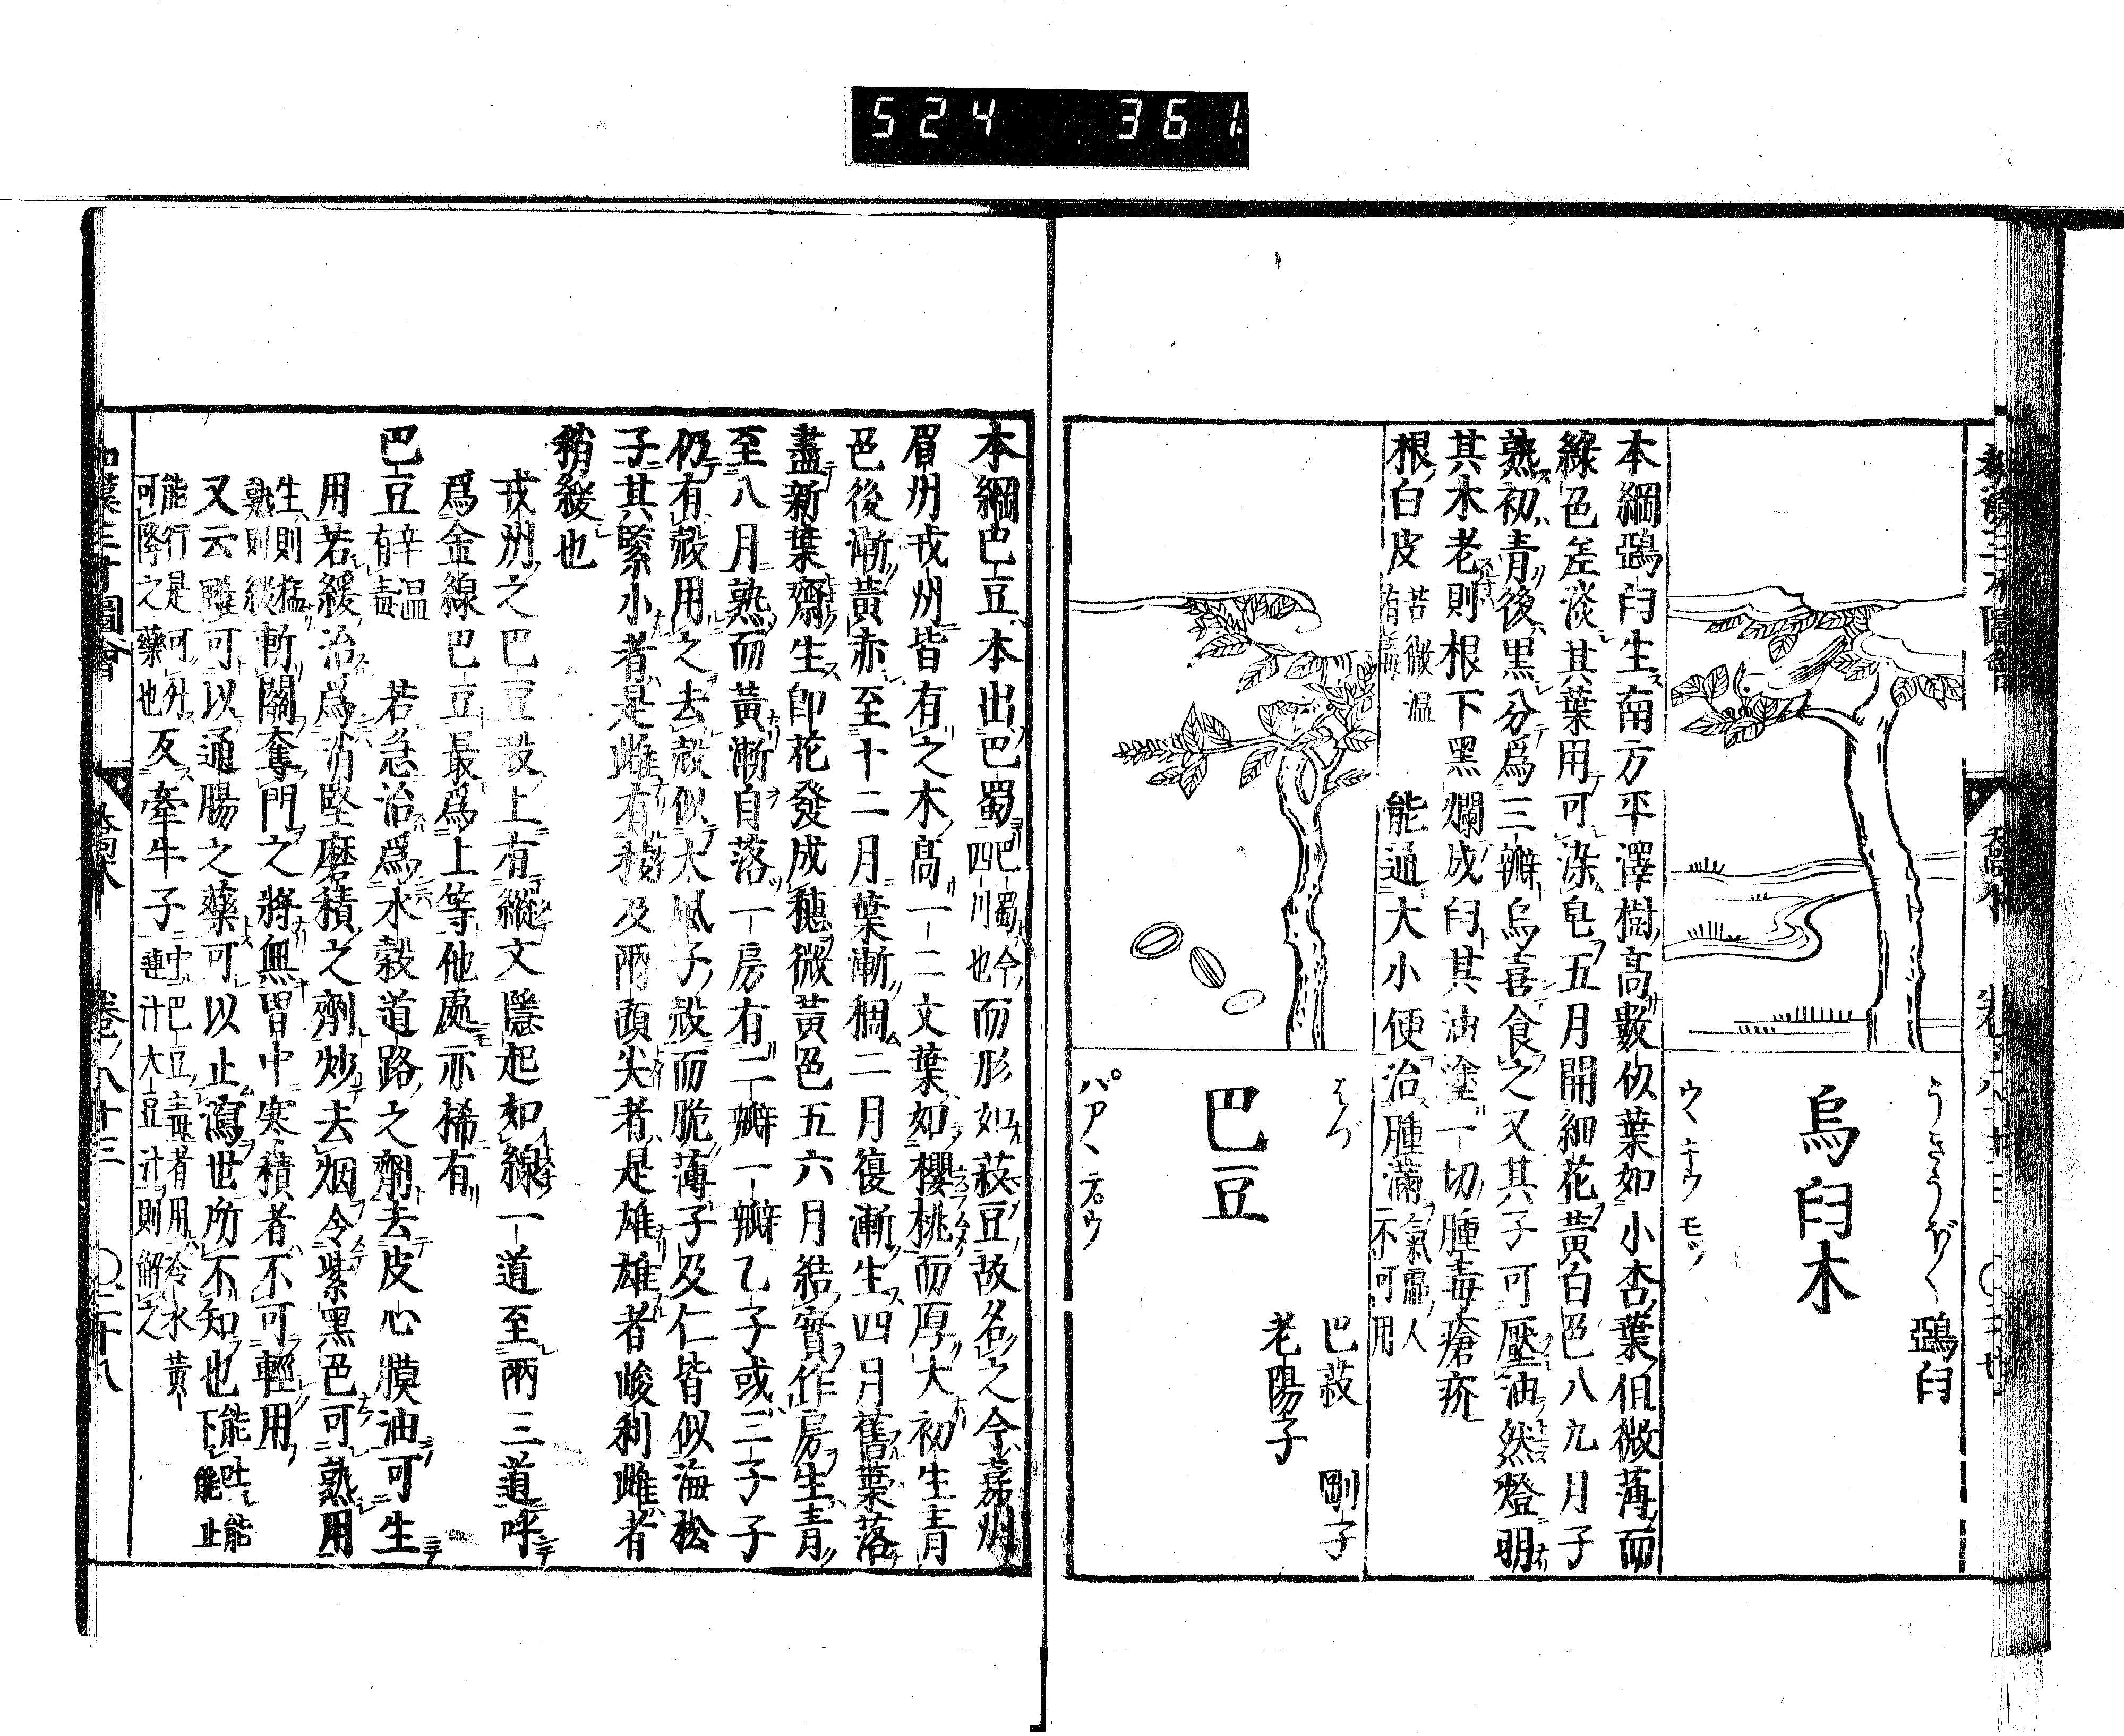 524 361
うきうぼく 鵶臼
烏臼木
ウヽキウ モツ
本綱鵶臼生南方平澤樹高數仭葉如小杏葉但微薄而
綠色差淡其葉用可染皂五月開細花黃白色八九月子
熟初青後黑分爲三瓣烏喜食之又其子可壓油然燈明
其木老則根下黑爛成臼其油塗一切腫毒瘡疥
根白皮 苦微温
有毒
能通大小便治腫滿 氣虛人
不可用
はづ
巴菽 剛子
老陽子
巴豆
パアヽテ゜ウ
本綱巴豆本出巴蜀 巴蜀今
四川也
而形如菽豆故名之今嘉州
眉州戎州皆有之木高一二丈葉如櫻桃而厚大初生青
色後漸黃赤至十二月葉漸稠二月復漸生四月舊葉落
盡新葉齋生即花發成穗微黃色五六月結實作房生青
至八月熟而黃漸自落一房有二瓣一瓣乙子或三子子
仍有殼用之去殼似大風子殼而脆薄子及仁皆似海松
子其緊小者是雌有稜及兩頭尖者是雄雄者峻利雌者
稍緩也
戎州之巴豆殼上有縱文隱起如線一道至兩三道呼
爲金線巴豆最爲上等他處亦稀有
巴豆 辛温
有毒
若急治爲水穀道路之劑去皮心膜油可生
用若緩治爲消堅磨積之劑炒去烟令紫黑色可熟用
生則猛
熟則緩
斬關奪門之將無胃中寒積者不可輕用
又云雖可以通腸之藥可以止瀉世所不知也 能吐能
下能止
能行是可升
可降之藥也
反牽牛子 中巴豆毒者用冷水黃
連汁大豆汁則解之